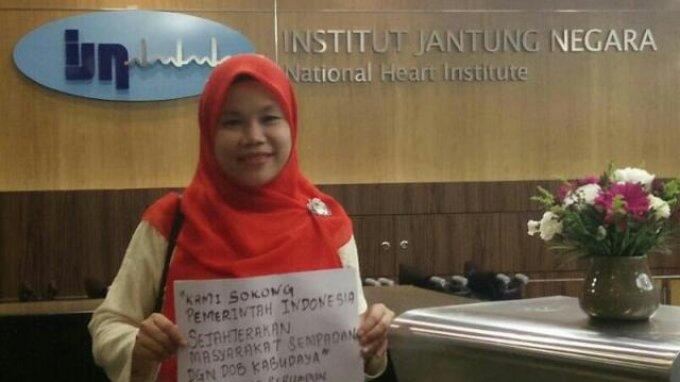 ijn
INSTITUT JANTUNG NEGARA
National Heart Institute
"KAMI SOKONG
PEMERINTAH INDONESIA
SEJAHTERAKAN
MASYARAKAT SEMPADAN
DGN DOB KABUDAYA"